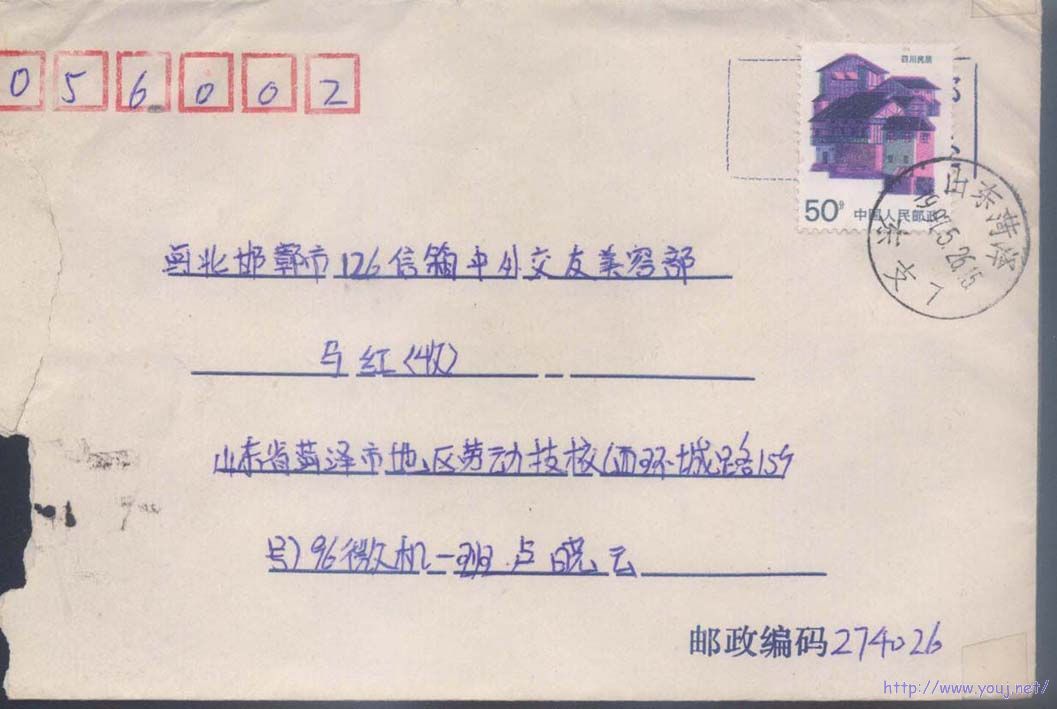 056002
四川民居
50分 中国人民邮政
山东菏泽
1997.5.26.15
河北邯郸市126信箱中外交友美容部
马红(收)
山东省菏泽市地区劳动技校(西环城路159
号)96微机一班 卢晓云
邮政编码274026
http://www.youj.net/